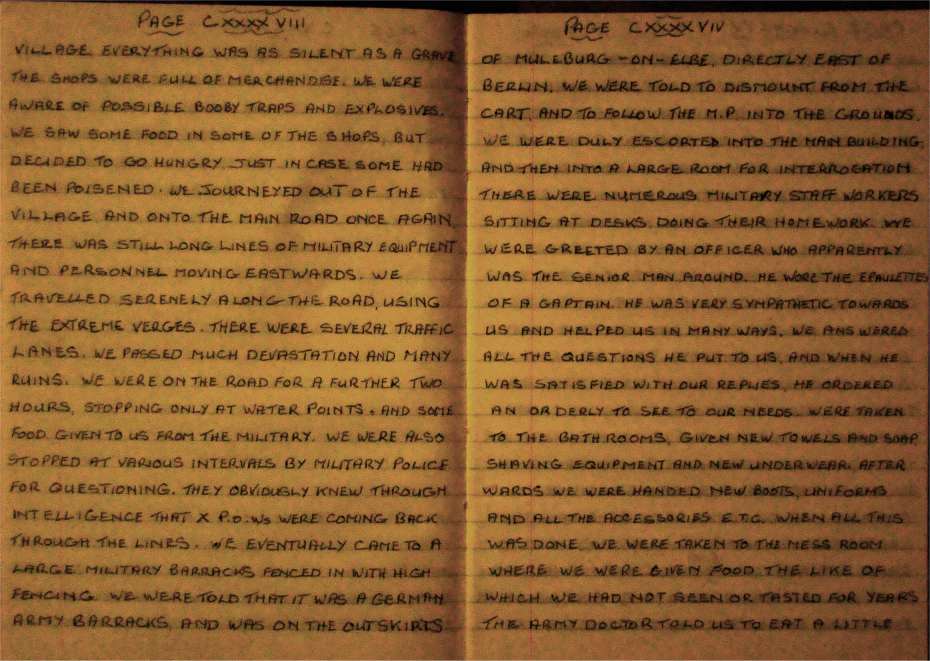 PAGE CXXXXVIII
VILLAGE EVERYTHING WAS AS SILENT AS A GRAVE
THE SHOPS WERE FULL OF MERCHANDISE. WE WERE
AWARE OF POSSIBLE BOOBY TRAPS AND EXPLOSIVES.
WE SAW SOME FOOD IN SOME OF THE SHOPS, BUT
DECIDED TO GO HUNGRY JUST IN CASE SOME HAD
BEEN POISENED. WE JOURNEYED OUT OF THE
VILLAGE AND ONTO THE MAIN ROAD ONCE AGAIN,
THERE WAS STILL LONG LINES OF MILITARY EQUIPMENT
AND PERSONNEL MOVING EASTWARDS. WE
TRAVELLED SERENELY ALONG THE ROAD, USING
THE EXTREME VERGES. THERE WERE SEVERAL TRAFFIC
LANES. WE PASSED MUCH DEVASTATION AND MANY
RUINS. WE WERE ON THE ROAD FOR A FURTHER TWO
HOURS, STOPPING ONLY AT WATER POINTS. AND SOME
FOOD GIVEN TO US FROM THE MILITARY. WE WERE ALSO
STOPPED AT VARIOUS INTERVALS BY MILITARY POLICE
FOR QUESTIONING. THEY OBVIOUSLY KNEW THROUGH
INTELLIGENCE THAT X P.O.WS WERE COMING BACK
THROUGH THE LINES. WE EVENTUALLY CAME TO A
LARGE MILITARY BARRACKS FENCED IN WITH HIGH
FENCING. WE WERE TOLD THAT IT WAS A GERMAN
ARMY BARRACKS, AND WAS ON THE OUTSKIRTS
PAGE CXXXXVIV
OF MULEBURG -ON- ELBE, DIRECTLY EAST OF
BERLIN. WE WERE TOLD TO DISMOUNT FROM THE
CART, AND TO FOLLOW THE M.P. INTO THE GROUNDS.
WE WERE DULY ESCORTED INTO THE MAIN BUILDING,
AND THEN INTO A LARGE ROOM FOR INTERROGATION
THERE WERE NUMEROUS MILITARY STAFF WORKERS
SITTING AT DESKS DOING THEIR HOMEWORK. WE
WERE GREETED BY AN OFFICER WHO APPARENTLY
WAS THE SENIOR MAN AROUND. HE WORE THE EPAULETTES
OF A CAPTAIN. HE WAS VERY SYMPATHETIC TOWARDS
US AND HELPED US IN MANY WAYS. WE ANSWERED
ALL THE QUESTIONS HE PUT TO US, AND WHEN HE
WAS SATISFIED WITH OUR REPLIES, HE ORDERED
AN ORDERLY TO SEE TO OUR NEEDS. WERE TAKEN
TO THE BATHROOMS, GIVEN NEW TOWELS AND SOAP
SHAVING EQUIPMENT AND NEW UNDERWEAR. AFTER
WARDS WE WERE HANDED NEW BOOTS, UNIFORMS
AND ALL THE ACCESSORIES E.T.C. WHEN ALL THIS
WAS DONE, WE WERE TAKEN TO THE MESS ROOM
WHERE WE WERE GIVEN FOOD THE LIKE OF
WHICH WE HAD NOT SEEN OR TASTED FOR YEARS
THE ARMY DOCTOR TOLD US TO EAT A LITTLE